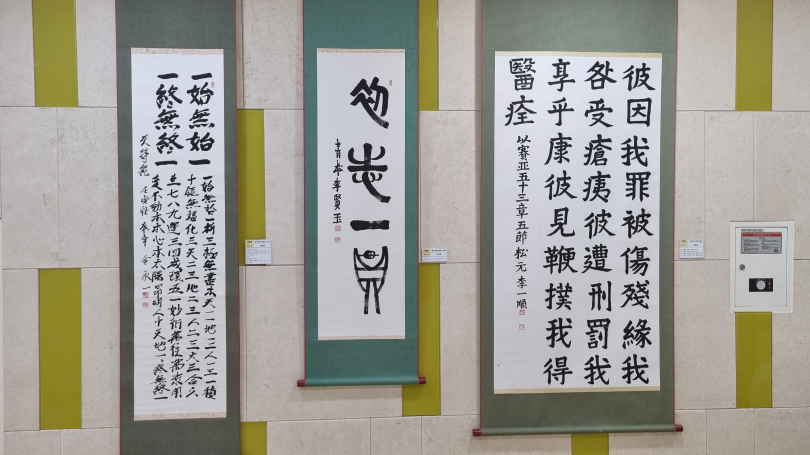 一始無始一
一終無終一
一始無始一析三極無盡本天一一地一二人一三一積
十鉅無匱化三天二三地二三人二三大三合六
生七八九運三四成環五七一妙衍萬往萬來用
變不動本本心本太陽昂明人中天地一一終無終一
天符經
初志一貫
李賢玉
彼因我罪被傷殘緣我
咎受瘡痍彼遭刑罰我
享乎康彼見鞭撲我得
醫痊 以賽亞五十三章五節 松元 李一順